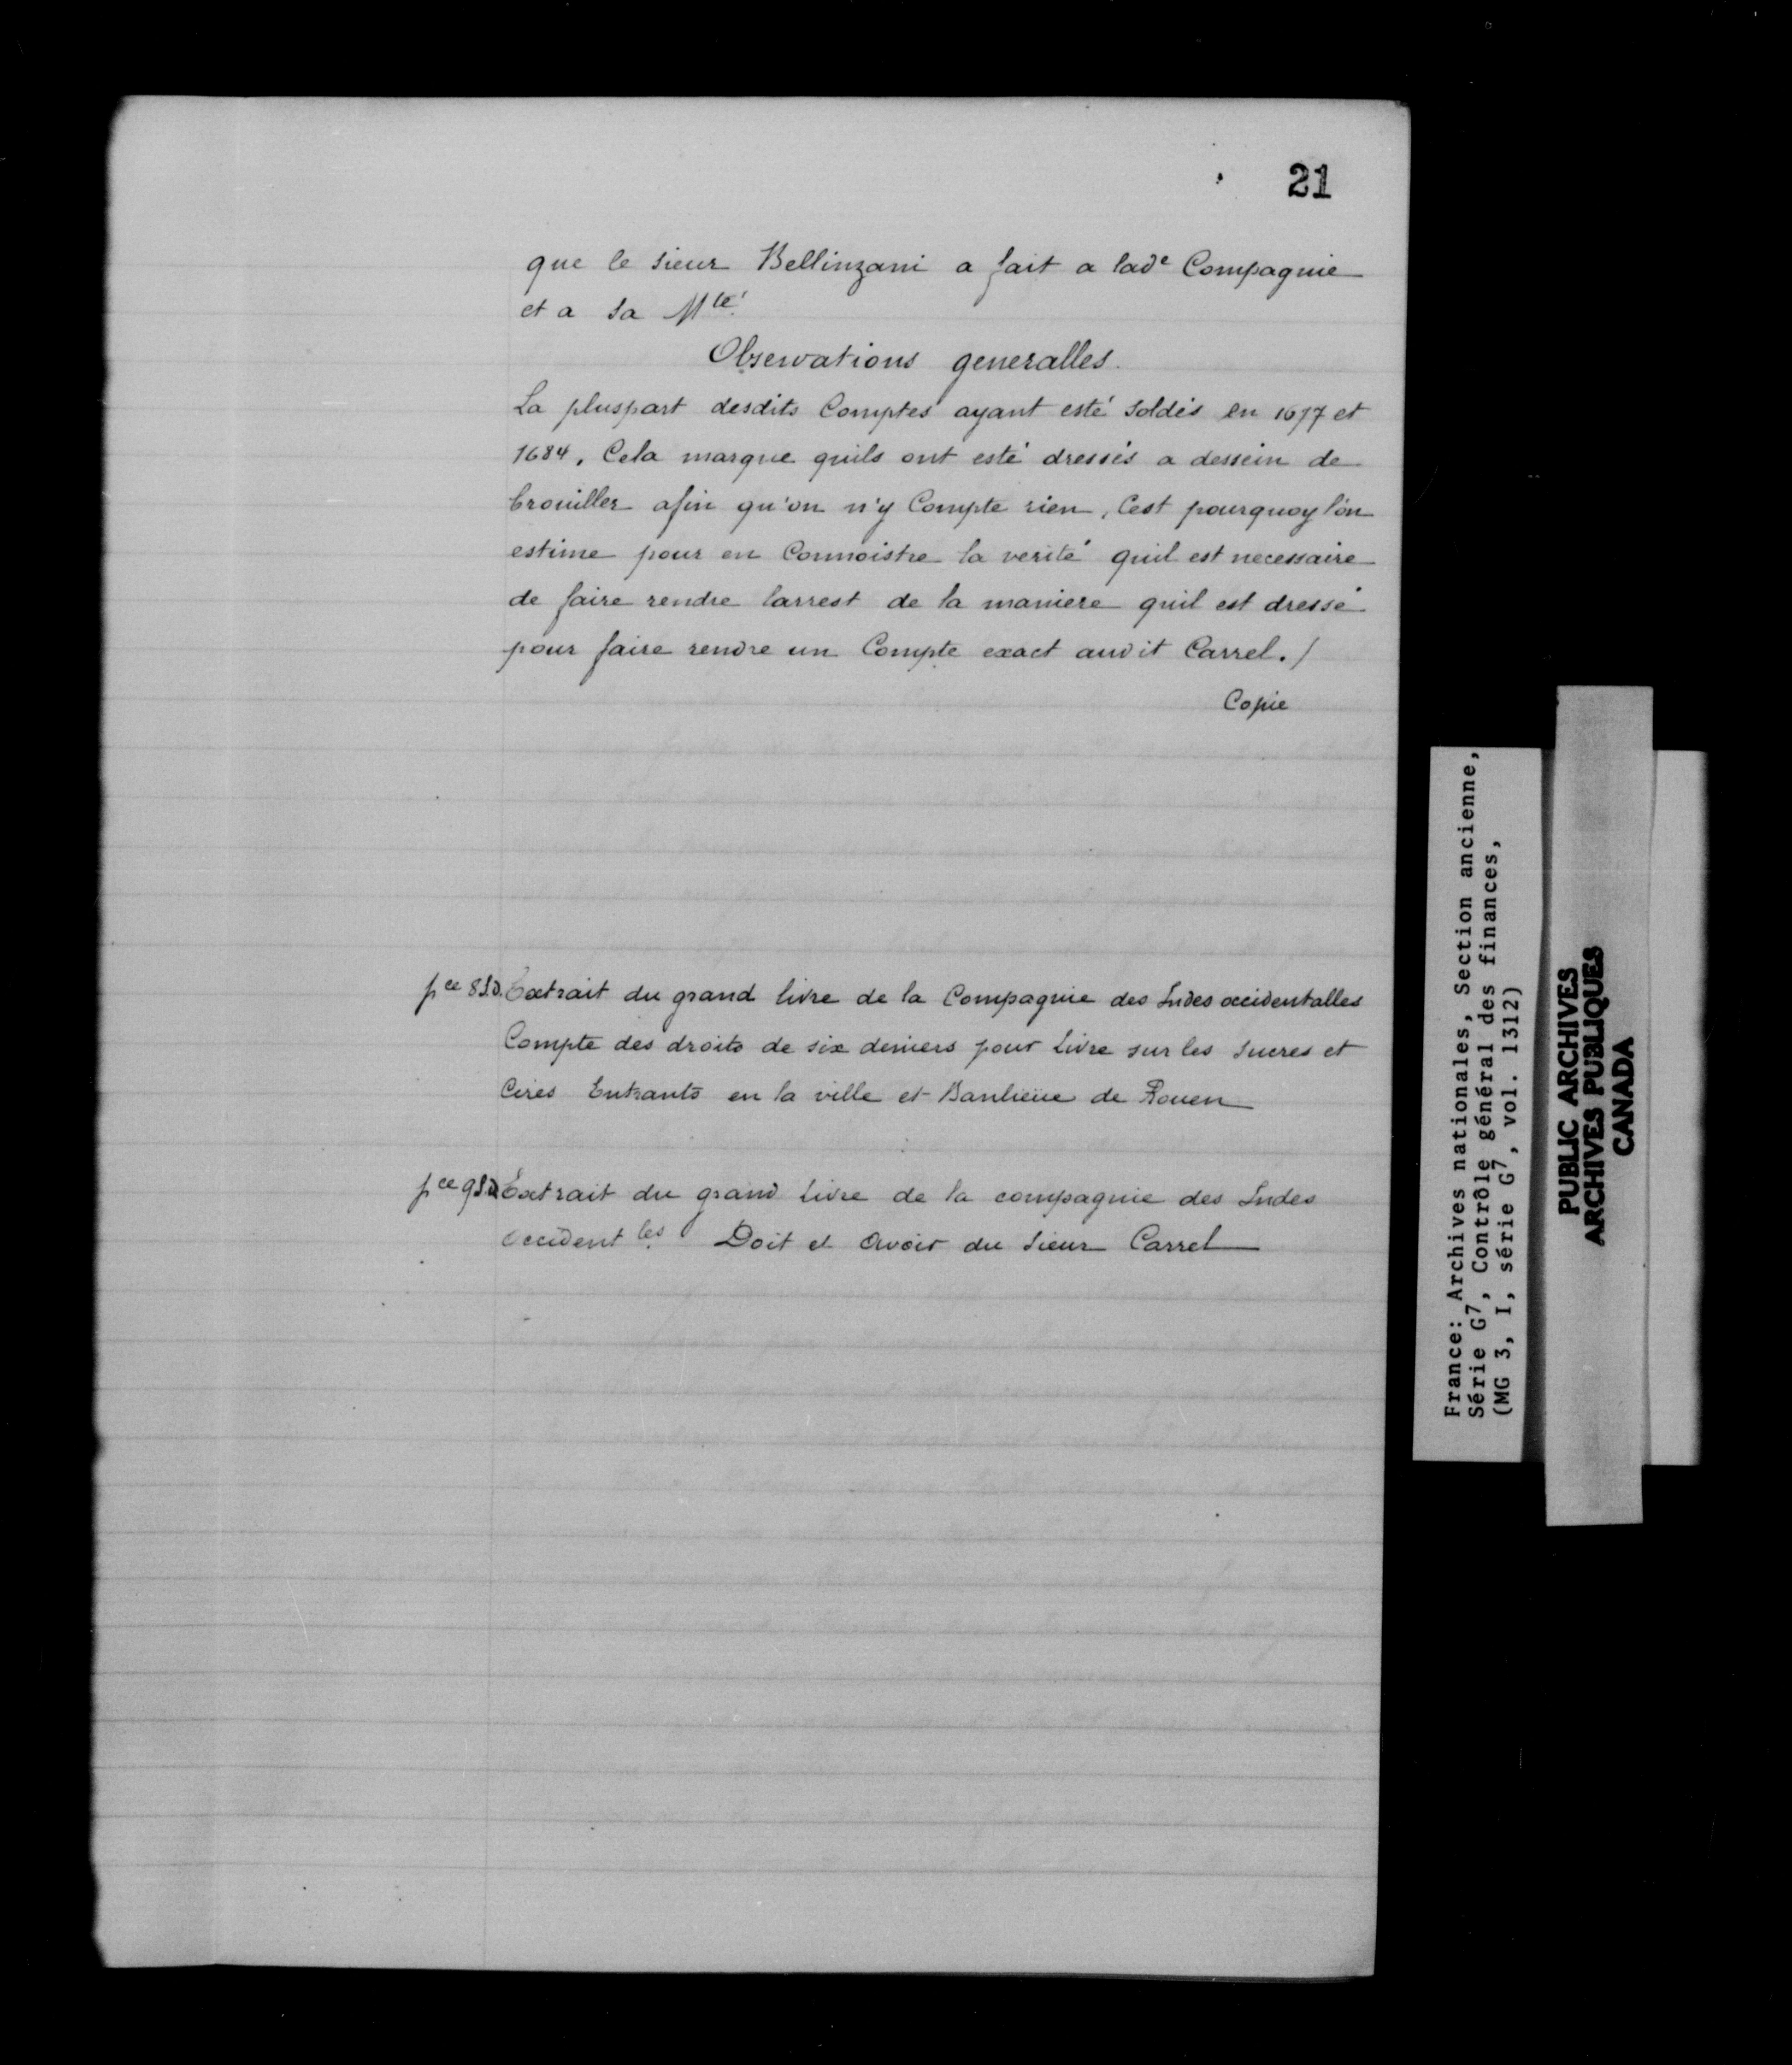 21
que le sieur Bellinzani a fait a lad^e Compagnie
et a Sa M^té.
Observations generalles.
La pluspart desdits Comptes ayant esté soldés en 1677 et
1684, Cela marque quils ont esté dressés a dessein de
brouiller afin qu'on n'y Compte rien, Cest pourquoy l'on
estime pour en Connoistre la verité quil est necessaire
de faire rendre larrest de la maniere quil est dressé
pour faire rendre un Compte exact audit Carrel./
Copie
p^ce 8 S.D. Extrait du grand livre de la Compagnie des Indes occidentalles
Compte des droits de six deniers pour livre sur les sucres et
Cires Entrants en la ville et Banlieüe de Rouen
p^ce 9 S.D. Extrait du grand livre de la compagnie des Indes
Occident^les Doit et avoir du sieur Carrel
France: Archives nationales, Section ancienne,
Série G7, Contrôle général des finances,
(MG 3, I, série G7, vol. 1312)
PUBLIC ARCHIVES
ARCHIVES PUBLIQUES
CANADA